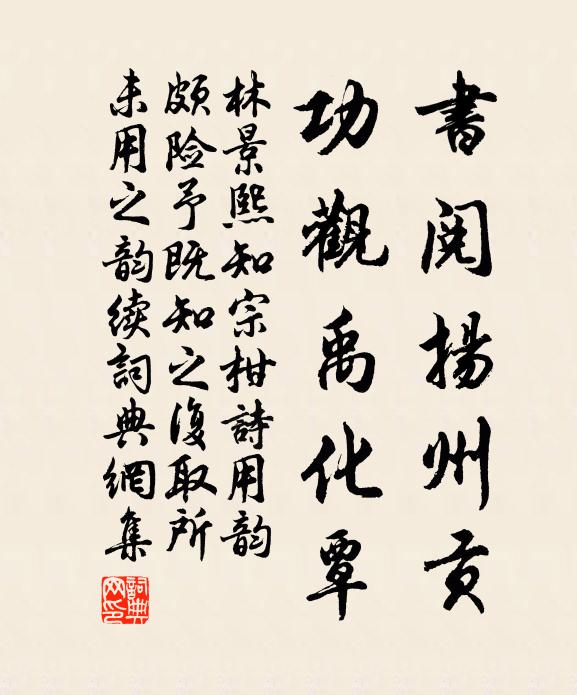 書阅揚州贡
功觀禹化覃
林景熙知宗柑詩用韵
颇险予既知之復取所
未用之韵续詞典網集
詞典网印